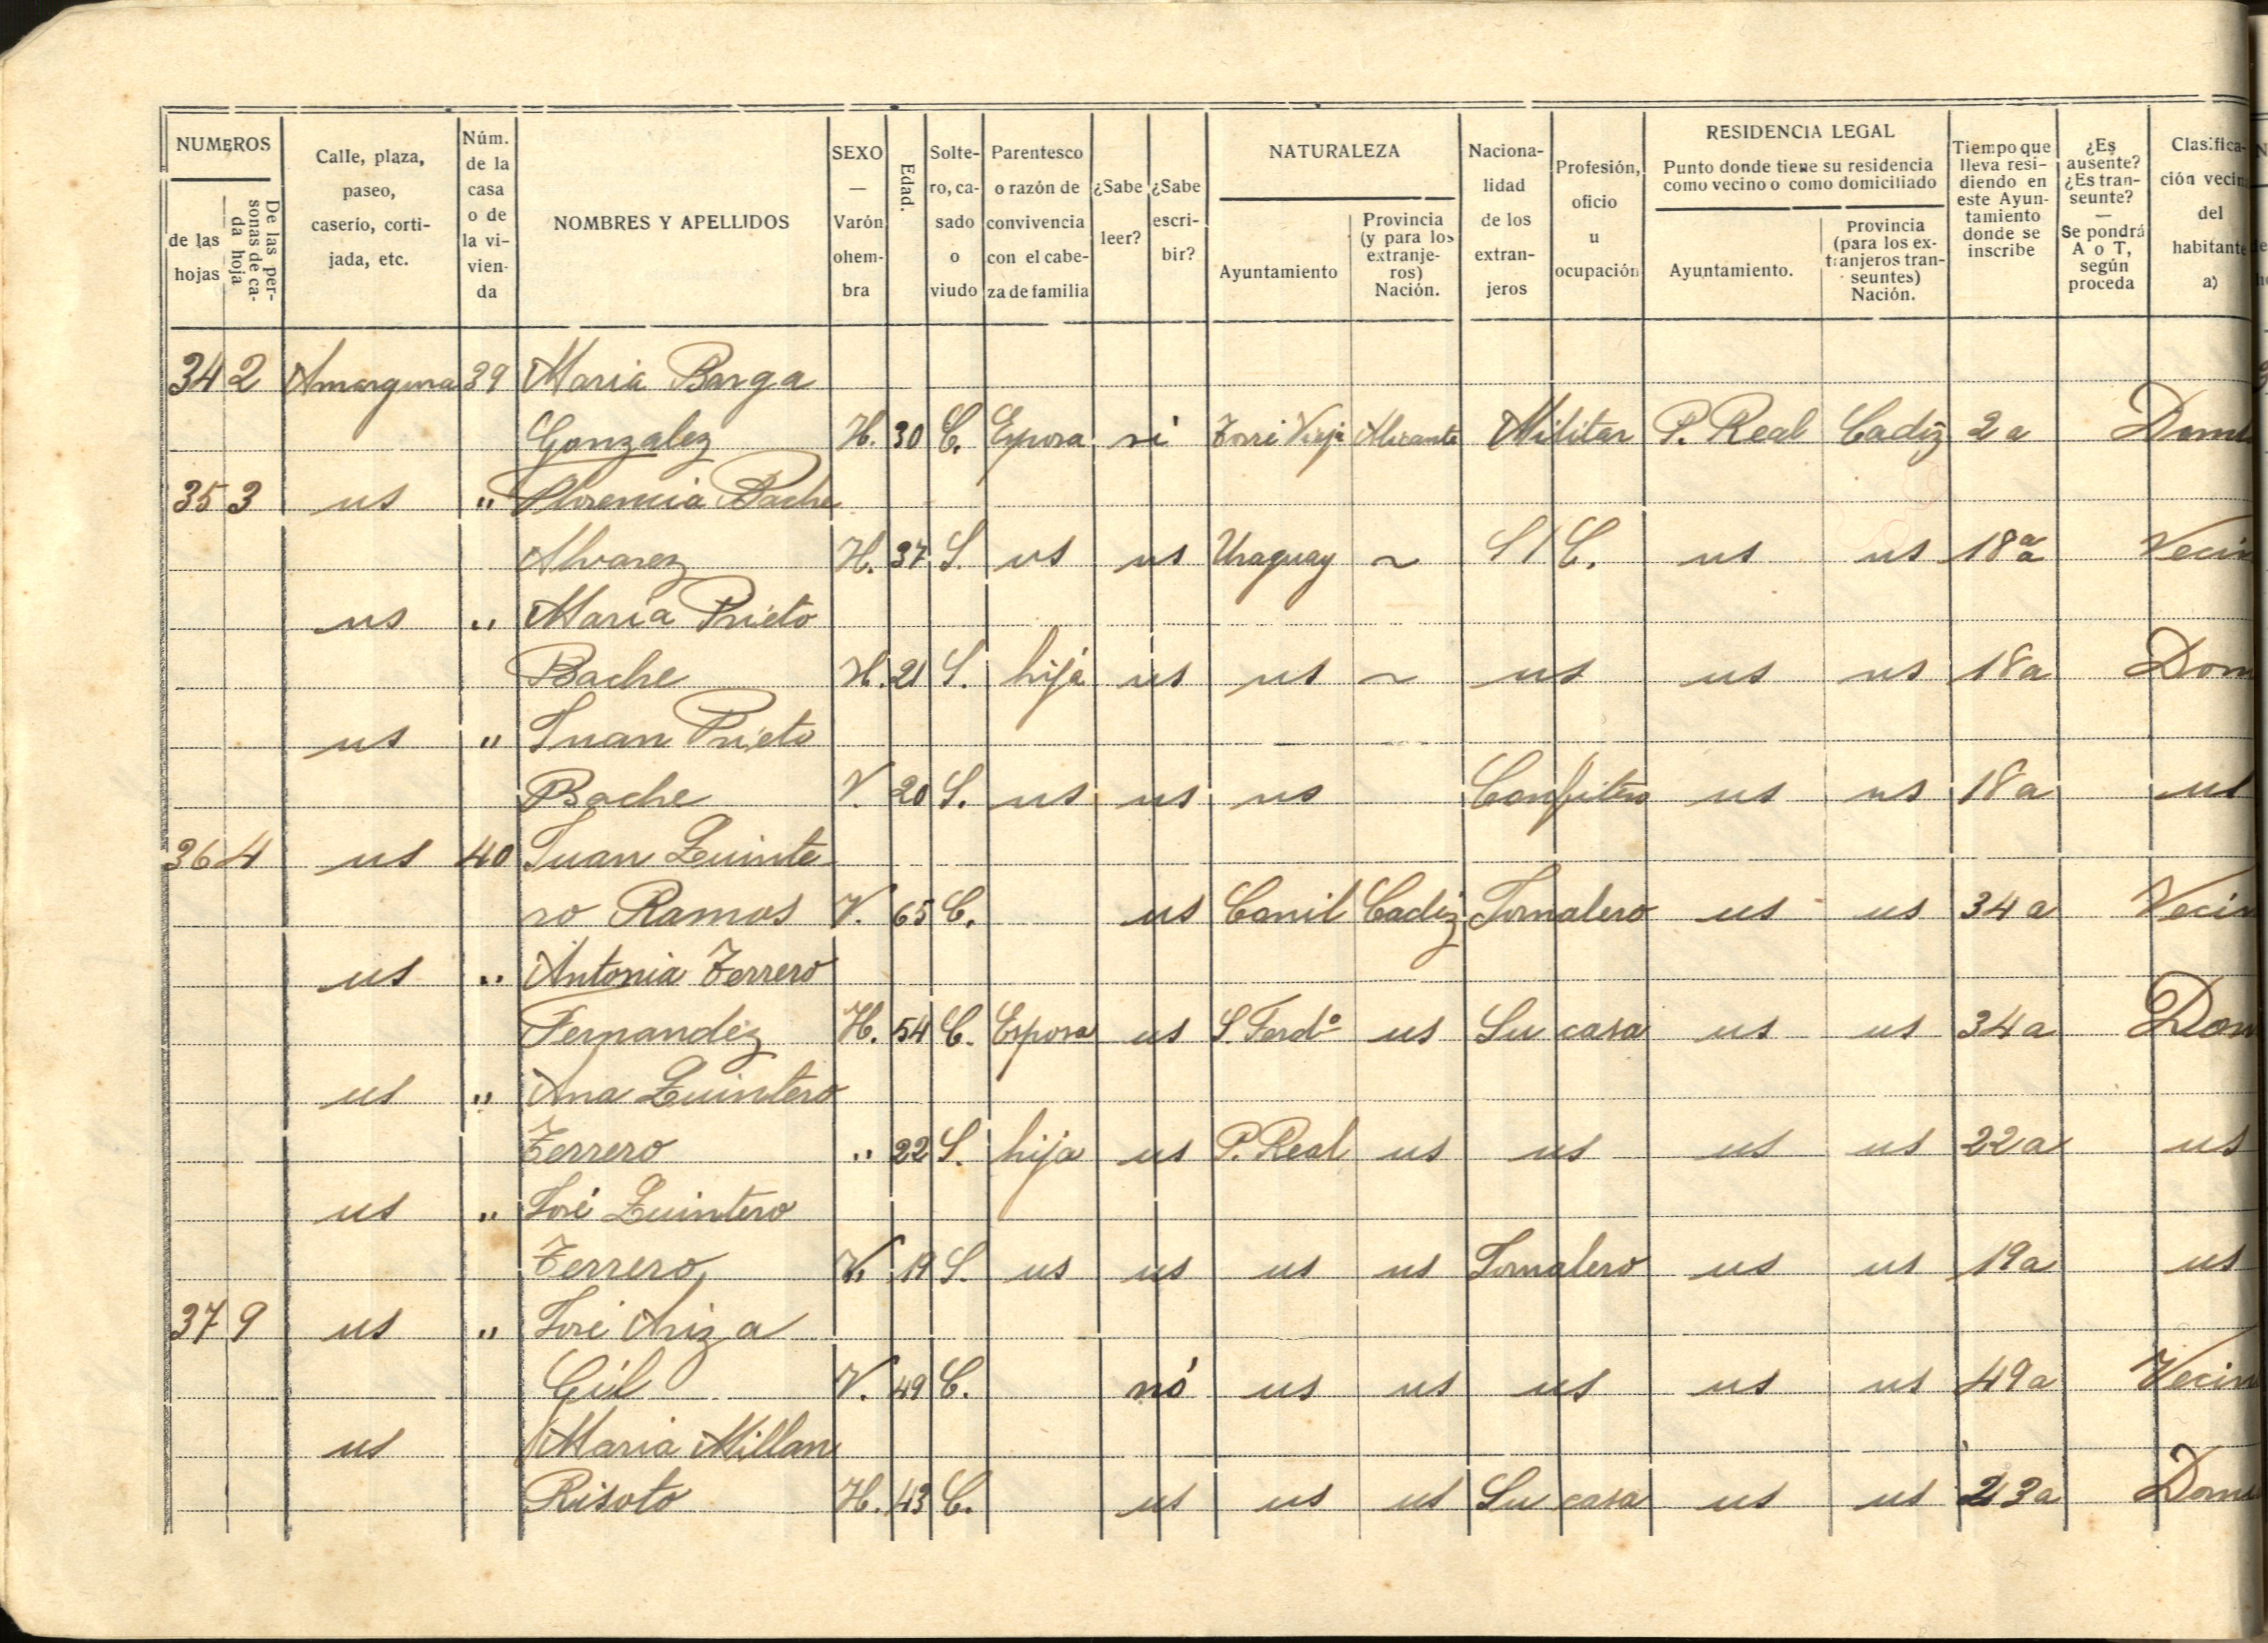 NUMEROS
de las hojas
De las personas de cada hoja
Calle, plaza, paseo, caserío, cortijada, etc.
Núm. de la casa o de la vivienda
NOMBRES Y APELLIDOS
SEXO — Varón o hembra
Edad.
Soltero, casado o viudo
Parentesco o razón de convivencia con el cabeza de familia
¿Sabe leer?
¿Sabe escribir?
NATURALEZA
Ayuntamiento
Provincia (y para los extranjeros) Nación.
Nacionalidad de los extranjeros
Profesión, oficio u ocupación
RESIDENCIA LEGAL
Punto donde tiene su residencia como vecino o como domiciliado
Ayuntamiento.
Provincia (para los extranjeros transeuntes) Nación.
Tiempo que lleva residiendo en este Ayuntamiento donde se inscribe
¿Es ausente? ¿Es transeunte? — Se pondrá A o T, según proceda
Clasificación vecin del habitante a)
34 2 Amargura 39 Maria Barga
Gonzalez H. 30 C. Esposa si Torre Vieja Alicante Militar P. Real Cadiz 2 a Domi
35 3 us " Florencia Bache
Alvarez H. 37 S. us us Uraguay ~ S/C. us us 18 a Vecin
us " Maria Prieto
Bache H. 21 S. hija us us ~ us us us 18 a Dom
us " Juan Prieto
Bache V. 20 S. us us us Confitero us us 18 a us
36 4 us 40 Juan Quinte
ro Ramos V. 65 C. us Conil Cadiz Jornalero us us 34 a Vecin
us " Antonia Terrero
Fernandez H. 54 C. Esposa us S Ferdº us Su casa us us 34 a Dom
us " Ana Quintero
Terrero " 22 S. hija us P. Real us us us us 22 a us
us " José Quintero
Terrero V. 19 S. us us us us Jornalero us us 19 a us
37 9 us " José Ariza
Gil V. 49 C. nó us us us us us 49 a Vecin
us Maria Millan
Risoto H. 43 C. us us us Su casa us us 23 a Domi